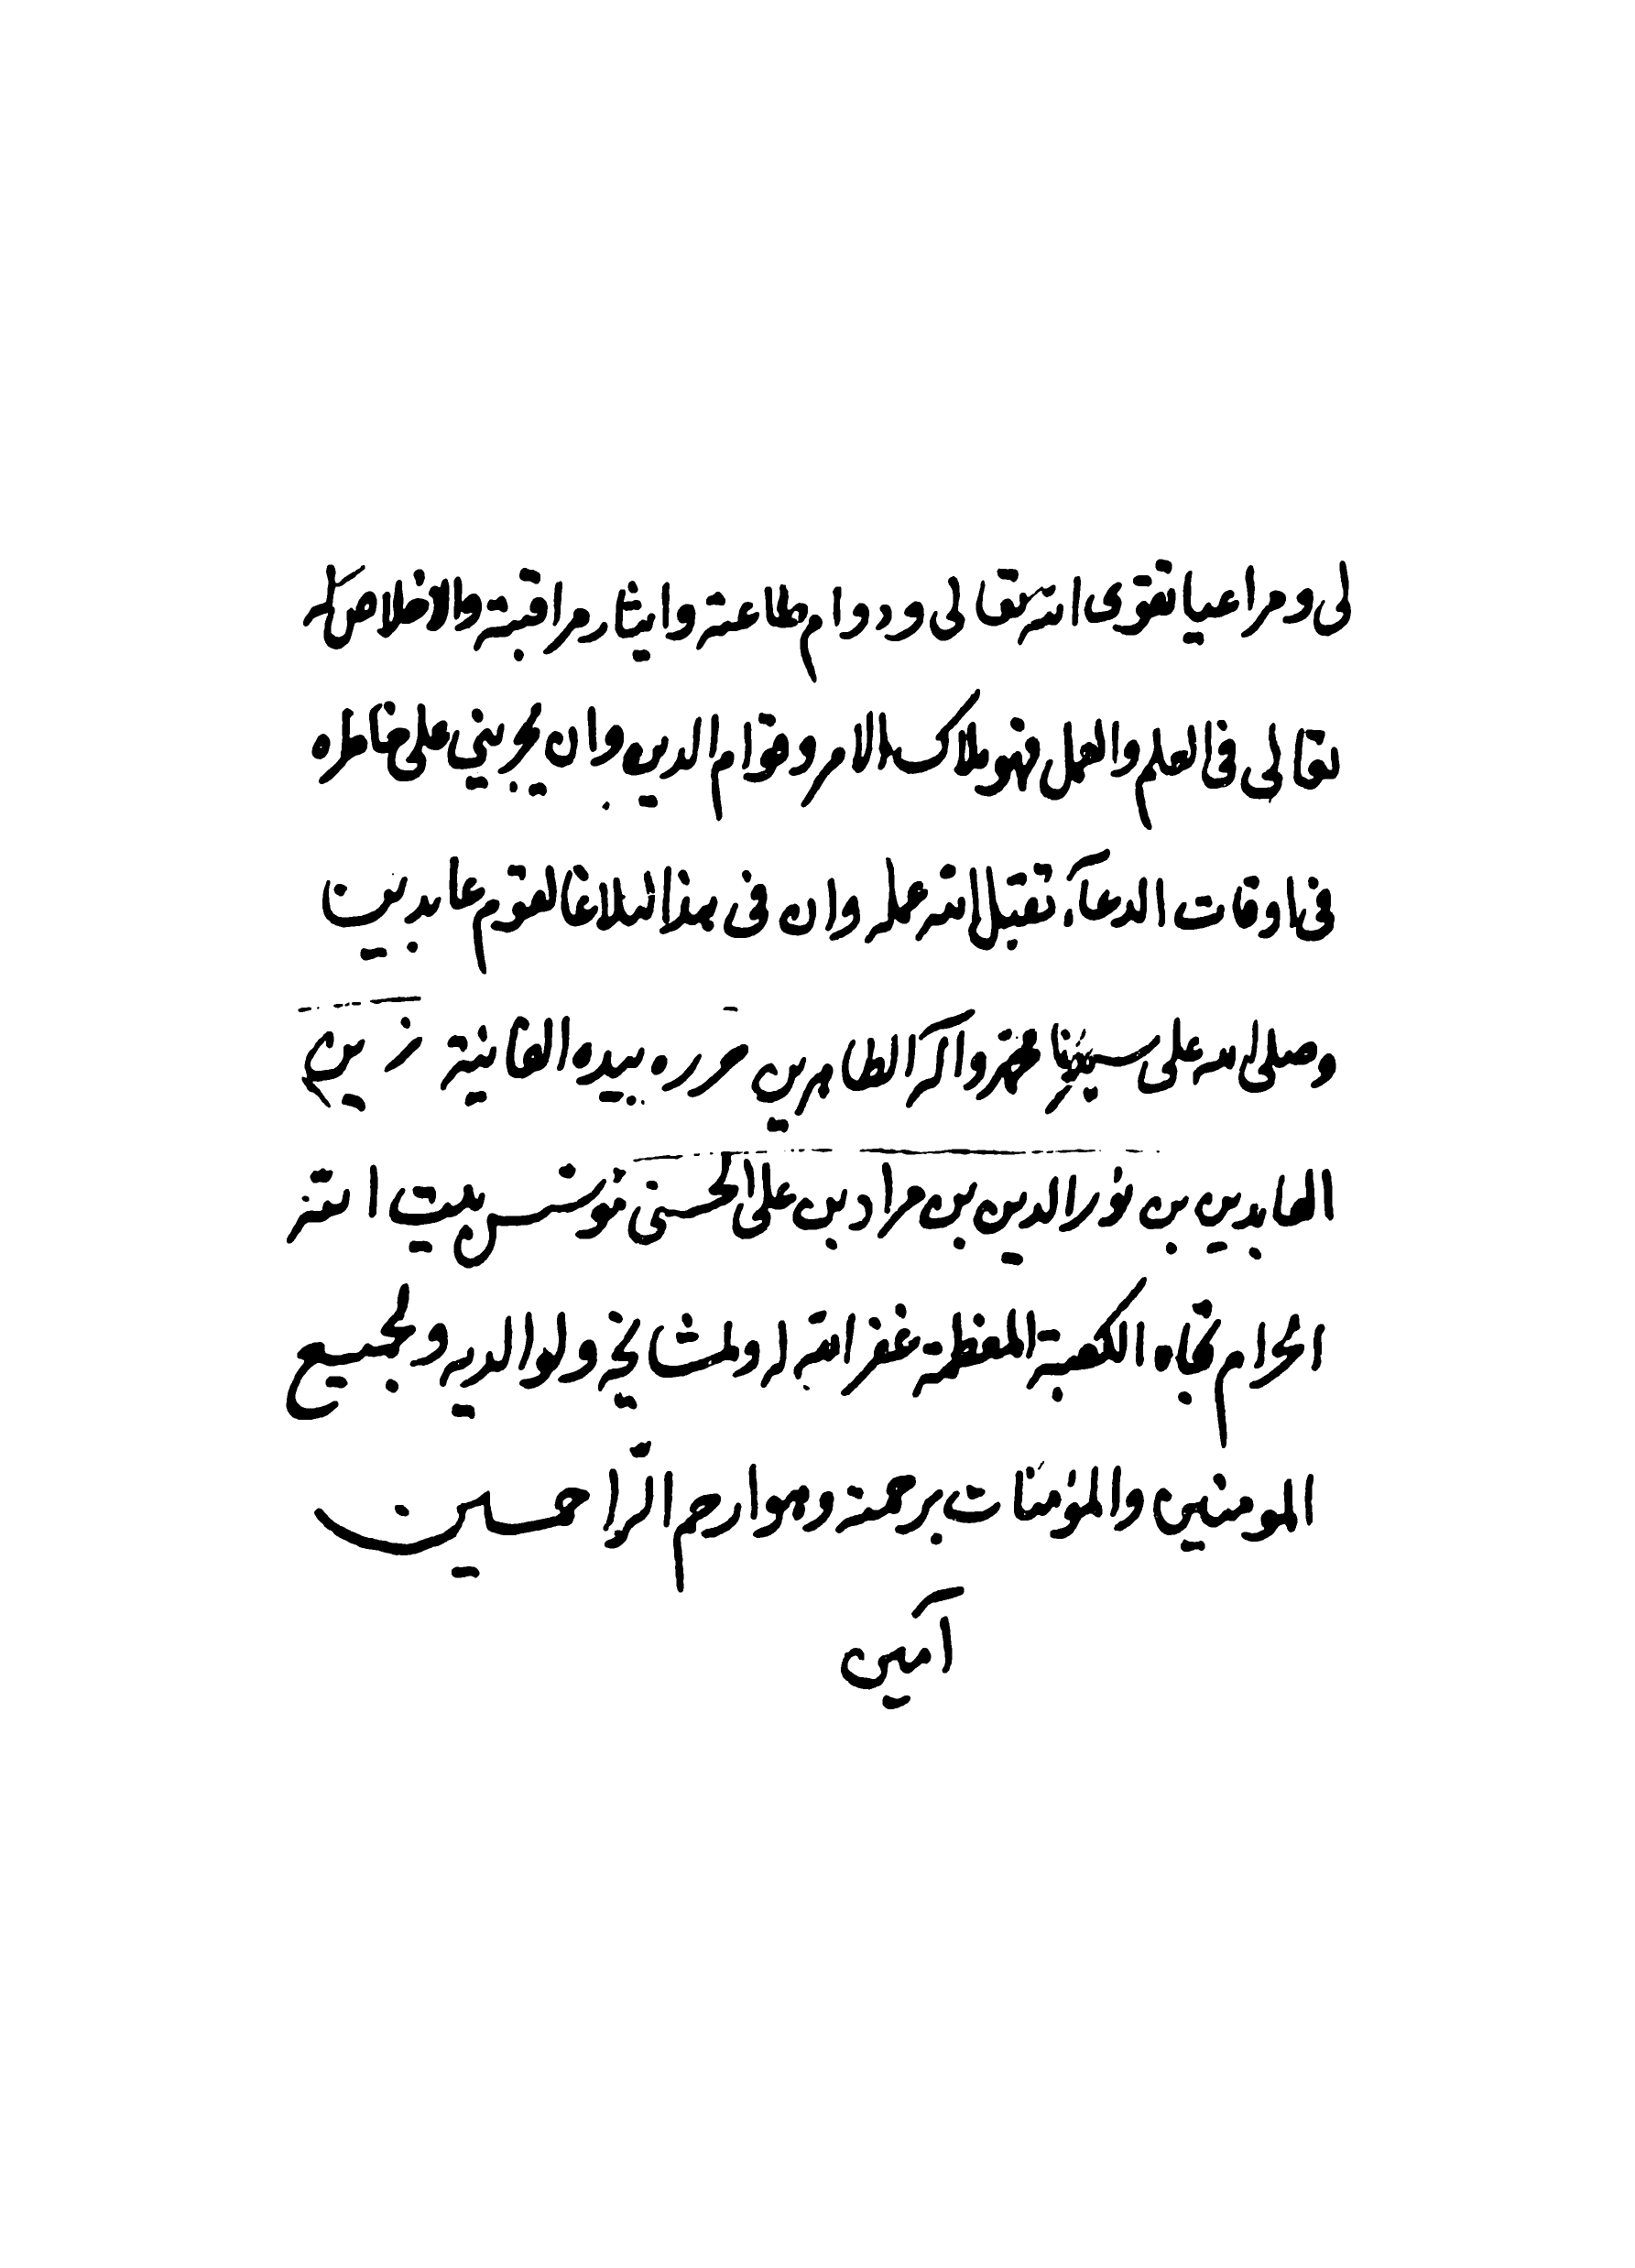 لى ومراعيا تقوى الله تعالى ودوام طاعته وايثار مراقبته والاخلاص له
تعالى فى العلم والعمل فهو ملاك الامر وقوام الدين وان يجرينى على خاطره
فى اوقات الدعآء تقبل الله عمله وان فى هذا لبلاغا لقوم عابدين
وصلى الله على سيدنا محمد وآله الطاهرين حرره بيده الفانية زين
العابدين بن نور الدين بن مراد بن على الحسنى مؤسس بيت الله
الحرام تجاه الكعبة المعظمة غفر الله له ولمشايخه ولوالديه ولجميع
المومنين والمؤمنات برحمته وهو ارحم الرّاحمين
آمين